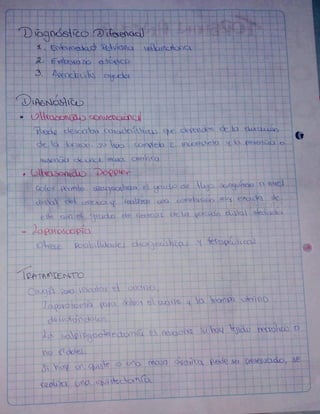 Diagnóstico Diferencial
1. Enfermedad Pelviana inflamatoria
2. Embarazo ectópico
3. Apendicitis aguda
DIAGNÓSTICO
• Ultrasonido convencional
Puede describir características que dependen de la duración
de la torsión, su tipo: completa e incompleta y la presencia o
ausencia de una masa ovárica
• Ultrasonido Doppler
Color permite diagnosticar el grado de flujo sanguíneo a nivel
distal del y realizar una correlación muy exacta de
este con el grado de necrosis de la porción distal afectada
- Laparoscopia
Ofrece Posibilidades diagnósticas y terapéuticas
TRATAMIENTO
Cirugía para el ovario,
Laparotomía para el ovario y la trompa uterina
La salpingooforectomía es necesaria si hay tejido necrótico o
no viable.
Si hay un quiste o una masa ovárica puede ser preservado, se
realiza una quistectomía